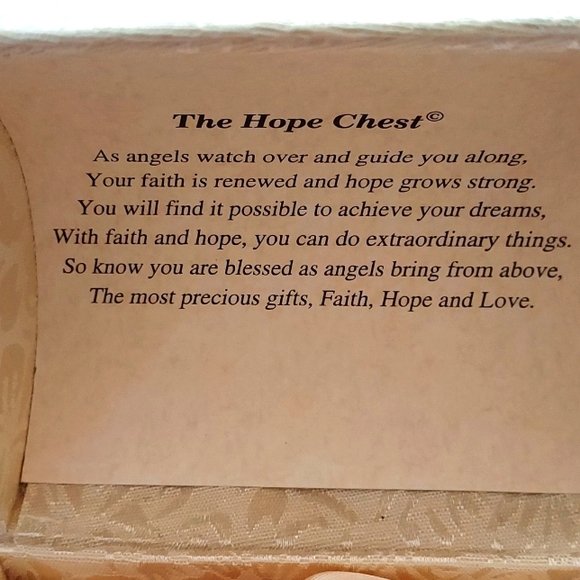 The Hope Chest©
As angels watch over and guide you along,
Your faith is renewed and hope grows strong.
You will find it possible to achieve your dreams,
With faith and hope, you can do extraordinary things.
So know you are blessed as angels bring from above,
The most precious gifts, Faith, Hope and Love.